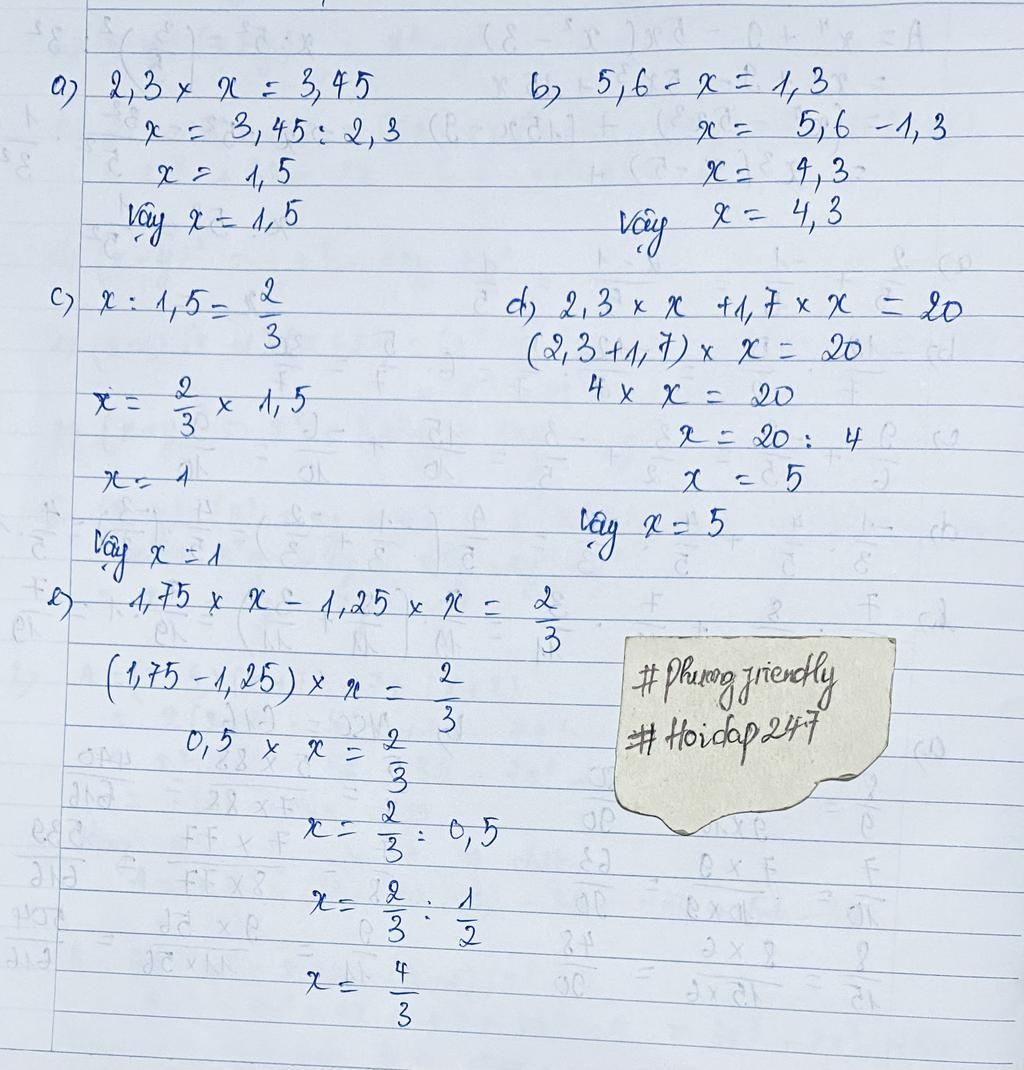 a) 2,3 × x = 3,45
x = 3,45 : 2,3
x = 1,5
Vậy x = 1,5
b) 5,6 - x = 1,3
x = 5,6 - 1,3
x = 4,3
Vậy x = 4,3
c) x : 1,5 = 2/3
x = 2/3 × 1,5
x = 1
Vậy x = 1
d) 2,3 × x + 1,7 × x = 20
(2,3 + 1,7) × x = 20
4 × x = 20
x = 20 : 4
x = 5
Vậy x = 5
e) 1,75 × x - 1,25 × x = 2/3
(1,75 - 1,25) × x = 2/3
0,5 × x = 2/3
x = 2/3 : 0,5
x = 2/3 : 1/2
x = 4/3
# Phuongfriendly
# Hoidap247